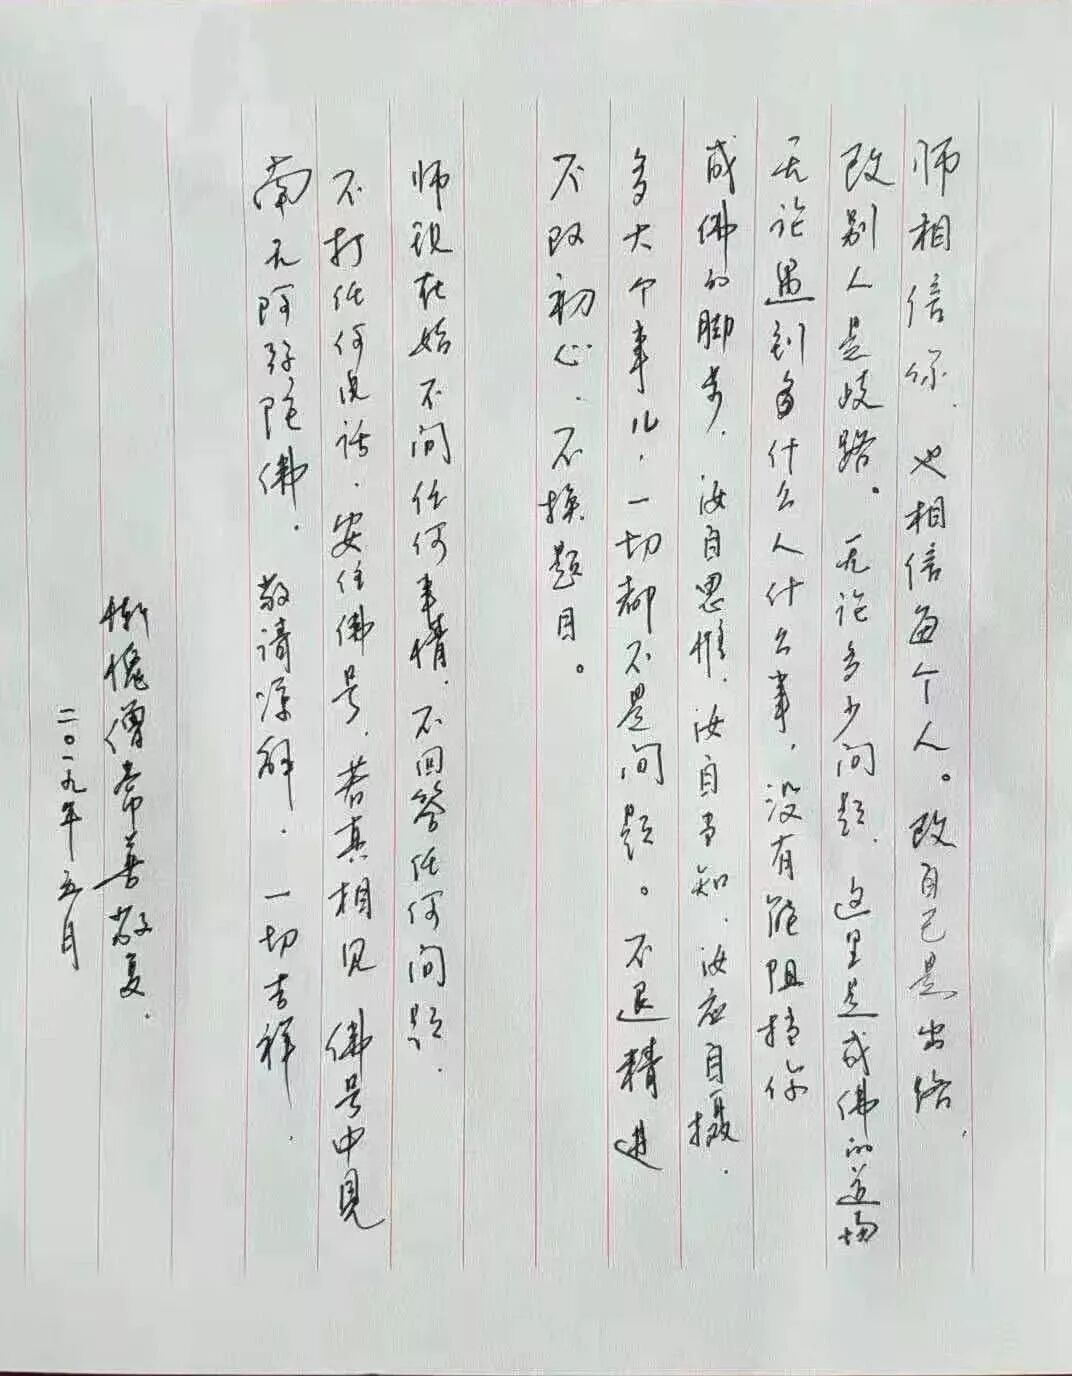 师相信你、也相信每个人。改自己是出路、
改别人是歧路。无论多少问题、这里是成佛的道场
无论遇到多什么人什么事，没有能阻挡你
成佛的脚步，汝自思惟，汝自当知，汝应自摄．
多大个事儿，一切都不是问题。不退精进
不改初心，不换题目。
师现在始不问任何事情，不回答任何问题．
不打任何电话，安住佛号，若真相见 佛号中见
南无阿弥陀佛． 敬请谅解．一切吉祥．
惭愧僧常善敬复．
二〇一九年五月